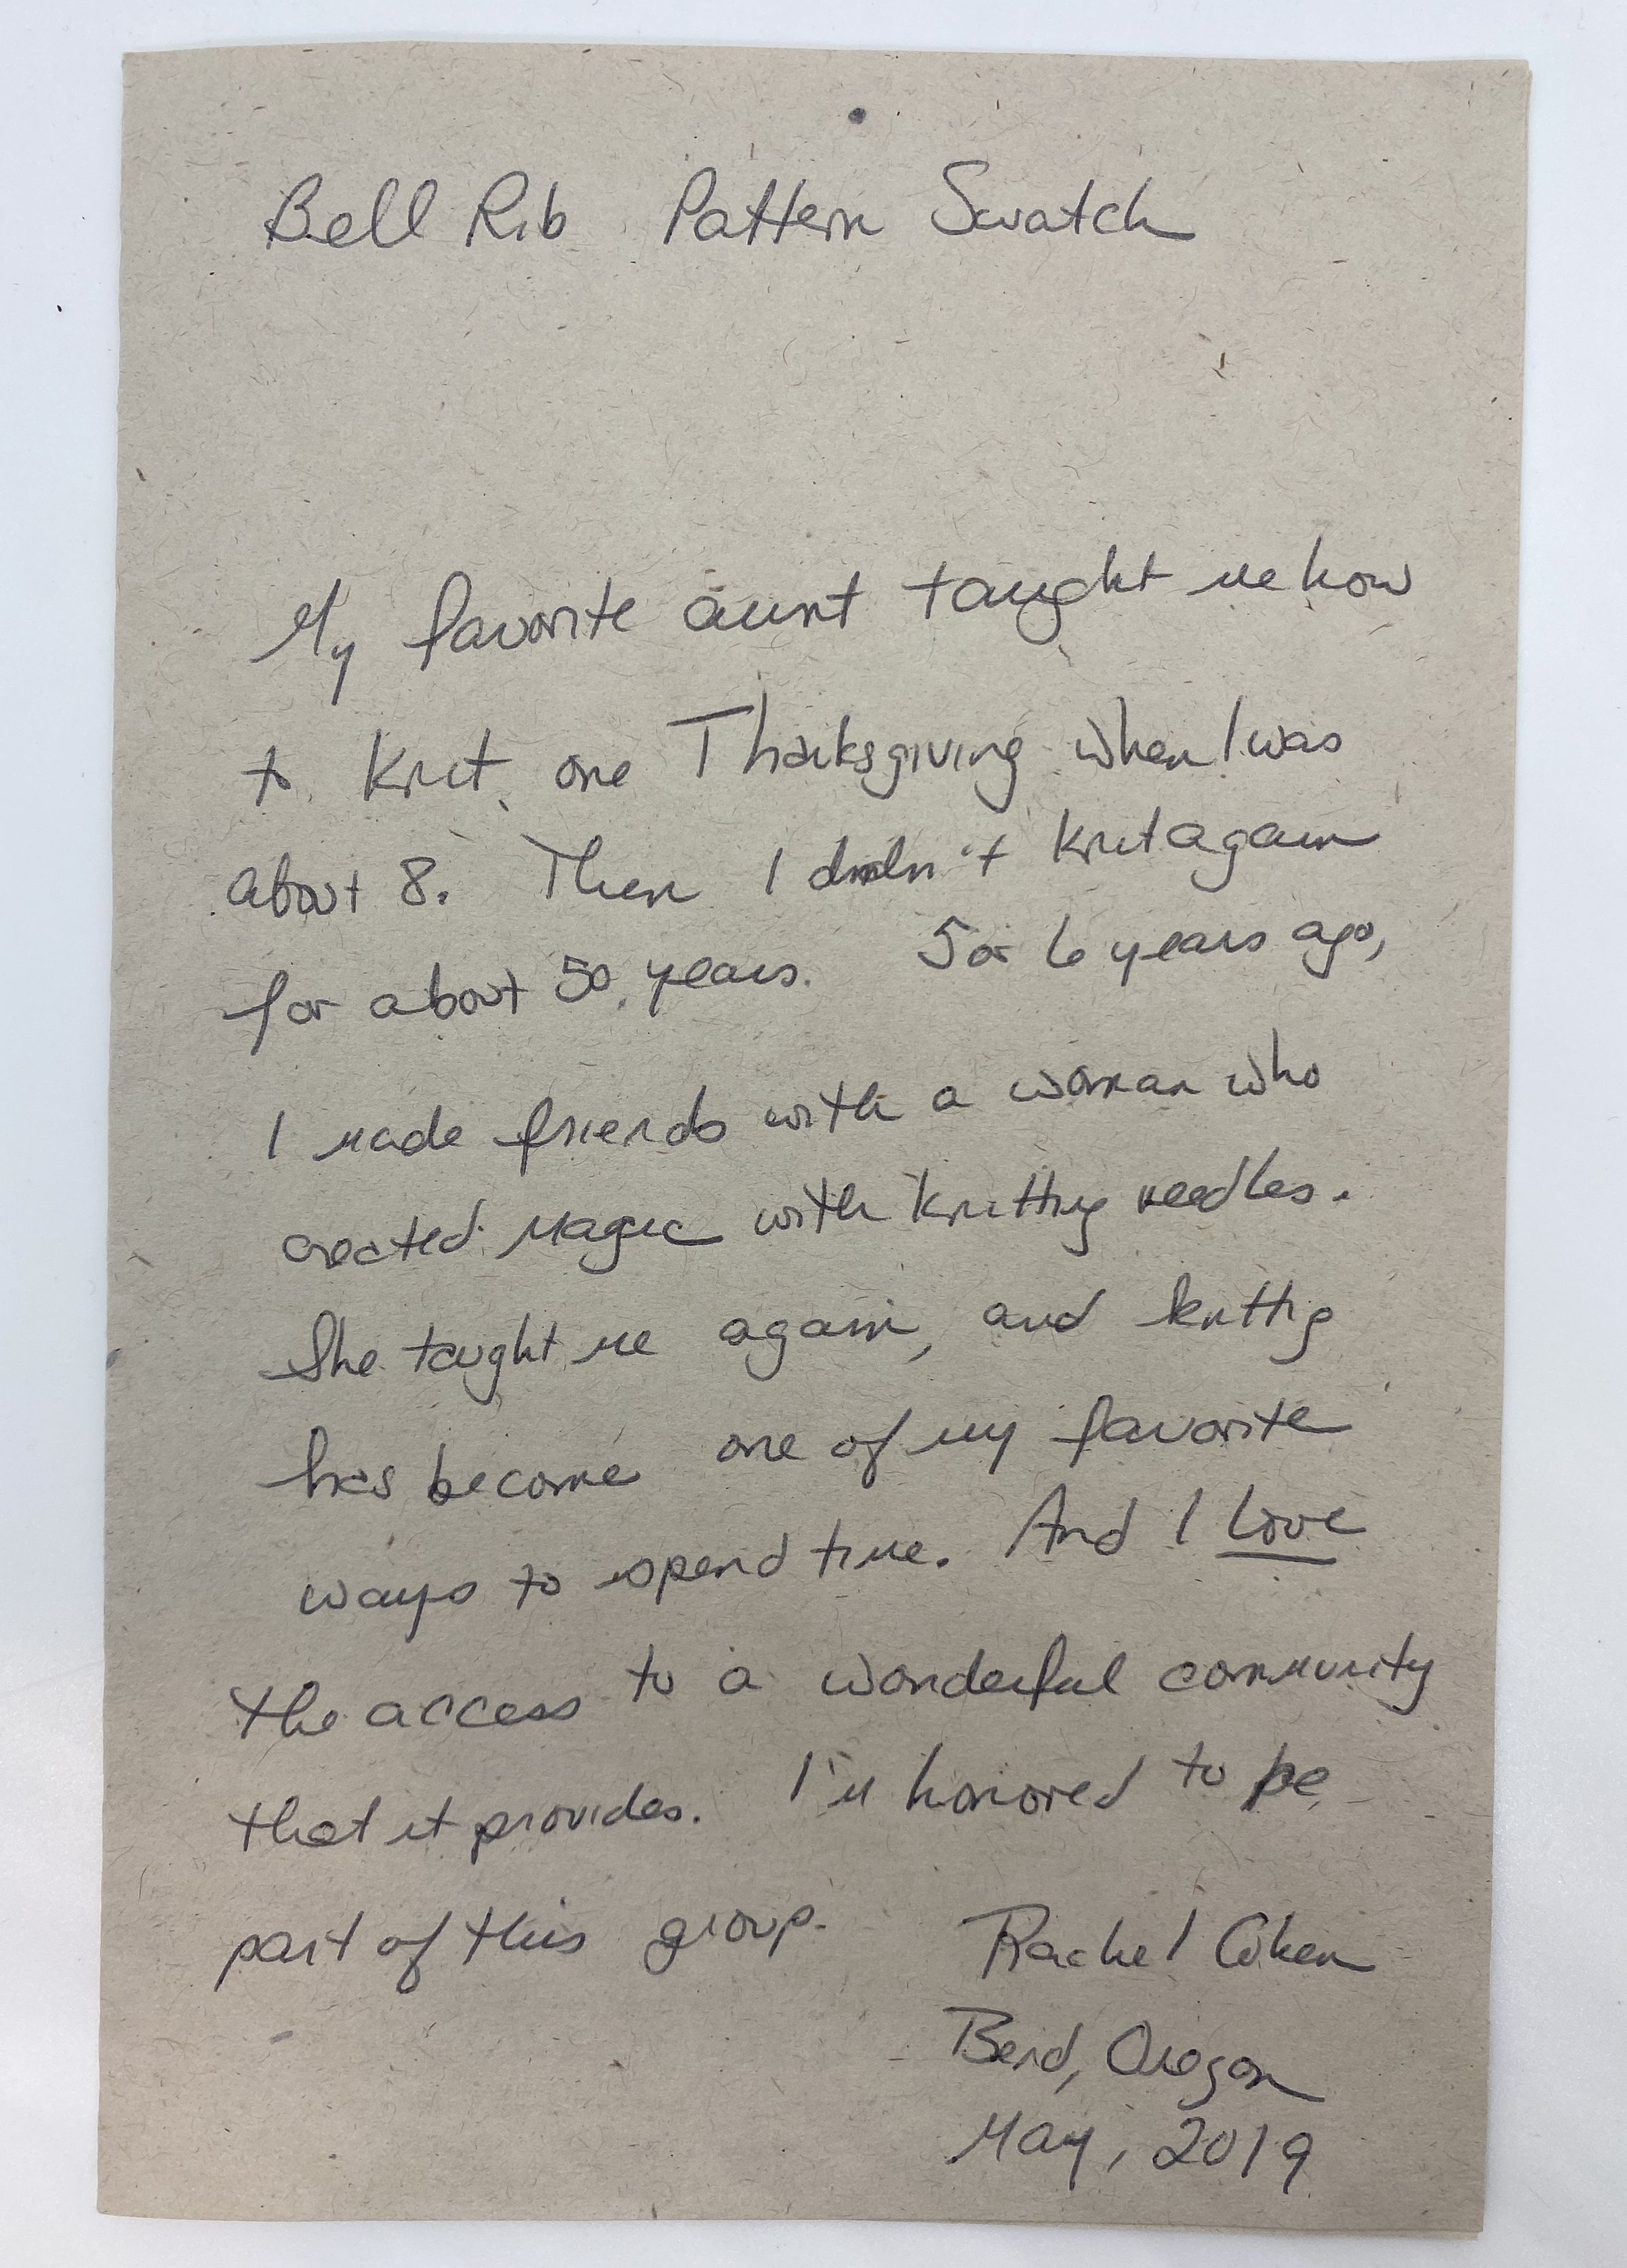 Bell Rib Pattern Swatch
My favorite aunt taught me how
to knit one Thanksgiving when I was
about 8. Then I didn't knit again
for about 50 years. 5 or 6 years ago,
I made friends with a woman who
created magic with knitting needles.
She taught me again, and knitting
has become one of my favorite
ways to spend time. And I love
the access to a wonderful community
that it provides. I'm honored to be
part of this group. Rachel Cohen
Bend, Oregon
May, 2019